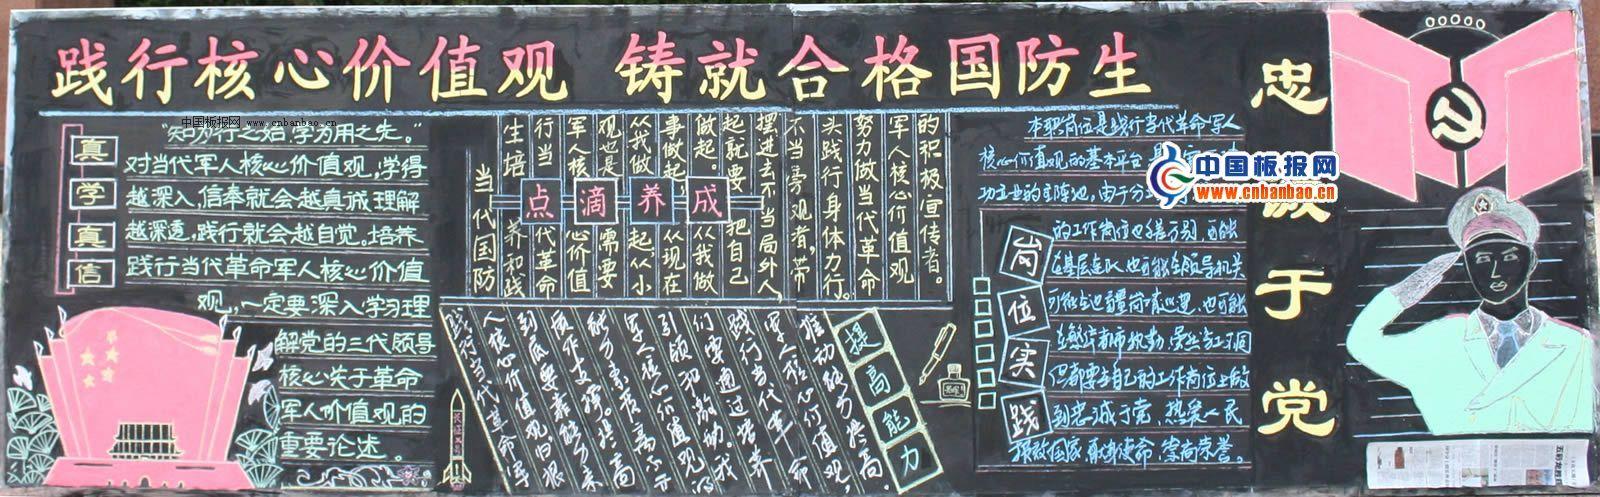 践行核心价值观 铸就合格国防生
中国板报网 www.cnbanbao.cn
真学真信
"知为行之始,学为用之先。"
对当代军人核心价值观,学得
越深入,信奉就会越真诚理解
越深透,践行就会越自觉。培养
践行当代革命军人核心价值
观,一定要深入学习理
解党的三代领导
核心关于革命
军人价值观的
重要论述。
点滴养成
当代国防
生培养和践
行当代革命
军人核心价值
观也是需要
从我做起,从小
事做起,从现在
做起。从我做
起就要把自己
摆进去不当局外人,
不当旁观者,带
头践行身体力行。
努力做当代革命
军人核心价值观
的积极宣传者。
提高能力
推动能力提高,
军人核心价值观,
践行当代革命
们要通过培养
引领和激励。我
军人核心价值观的
能力素质离不开
质作支撑。提高
到底要靠能力素
人核心价值观归根
践行当代革命军
长征五号
岗位实践
本职岗位是践行当代革命军人
核心价值观的基本平台
功立业的主阵地。由于分
的工作岗位也千差万别,可能
在基层连队,也可能在领导机关
可能在边疆荷哨巡逻,也可能
在繁华都市执勤,虽然分工不同
但都要在自己的工作岗位上做
到忠诚于党、热爱人民
报效国家、献身使命、崇尚荣誉。
中国板报网
www.cnbanbao.cn
忠
诚
于
党